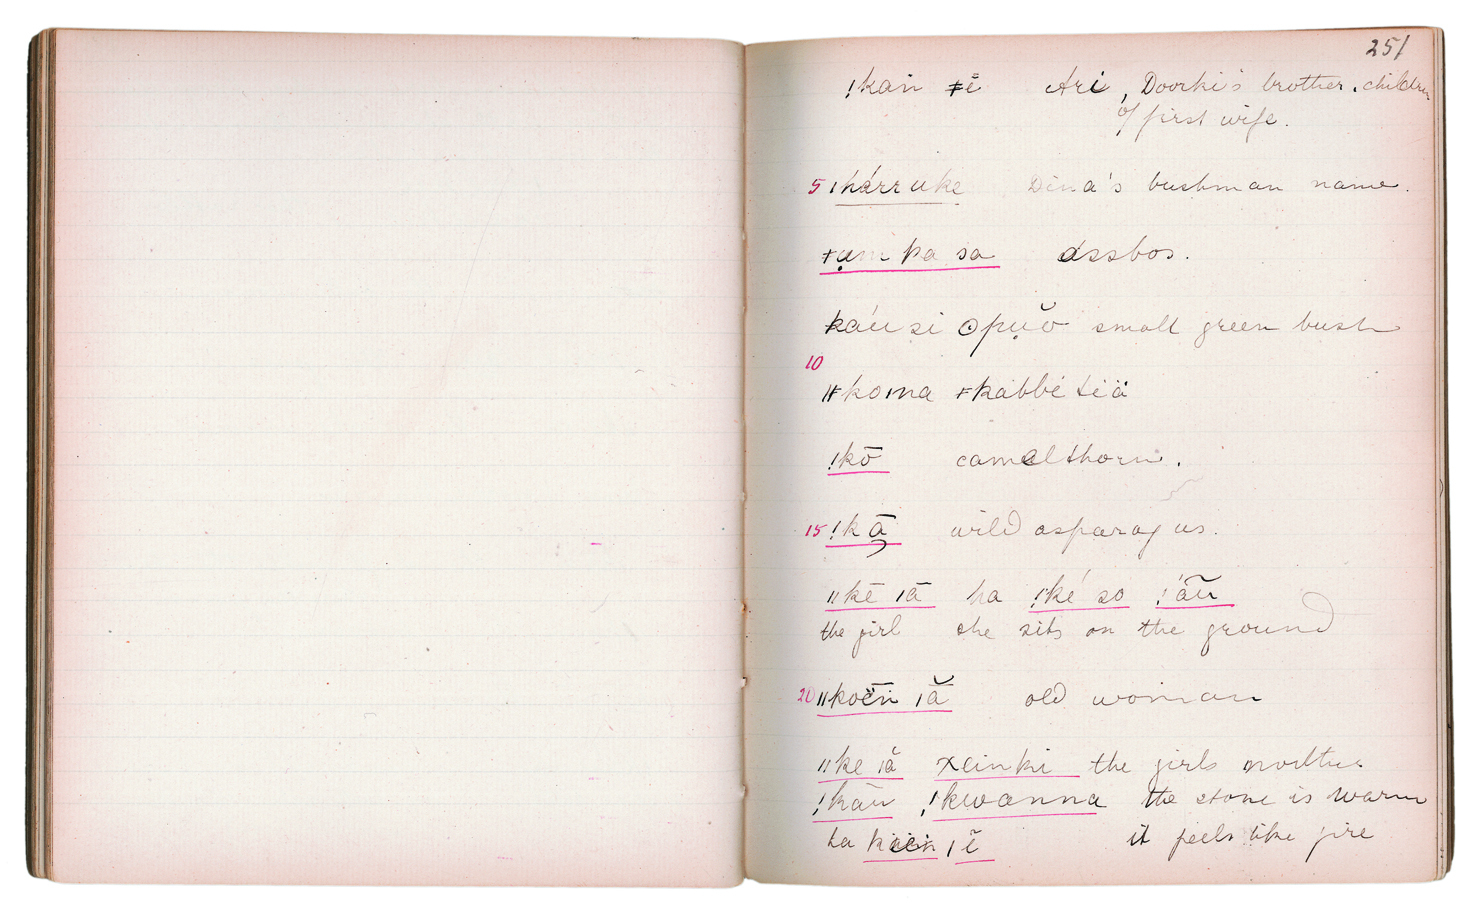 251
!kań ǂē Ari, Doorki's brother, children
of first wife.
5 ǀhárruke Dina's bushman name.
ǂụm pa sa assbos.
káu si ʘpụŏ small green bush
10
koına ǂkabbe tiä
!kō camelthorn.
15 !ką̄ wild asparagus.
ǁkē ǀā ha !ké so !ãu
the girl she sits on the ground
20 ǁkoën ǀă old woman
ǁke ǀă xeinki the girls mother
!kāu !kwanna the stone is warm
ha ǀĕ it feels like fire